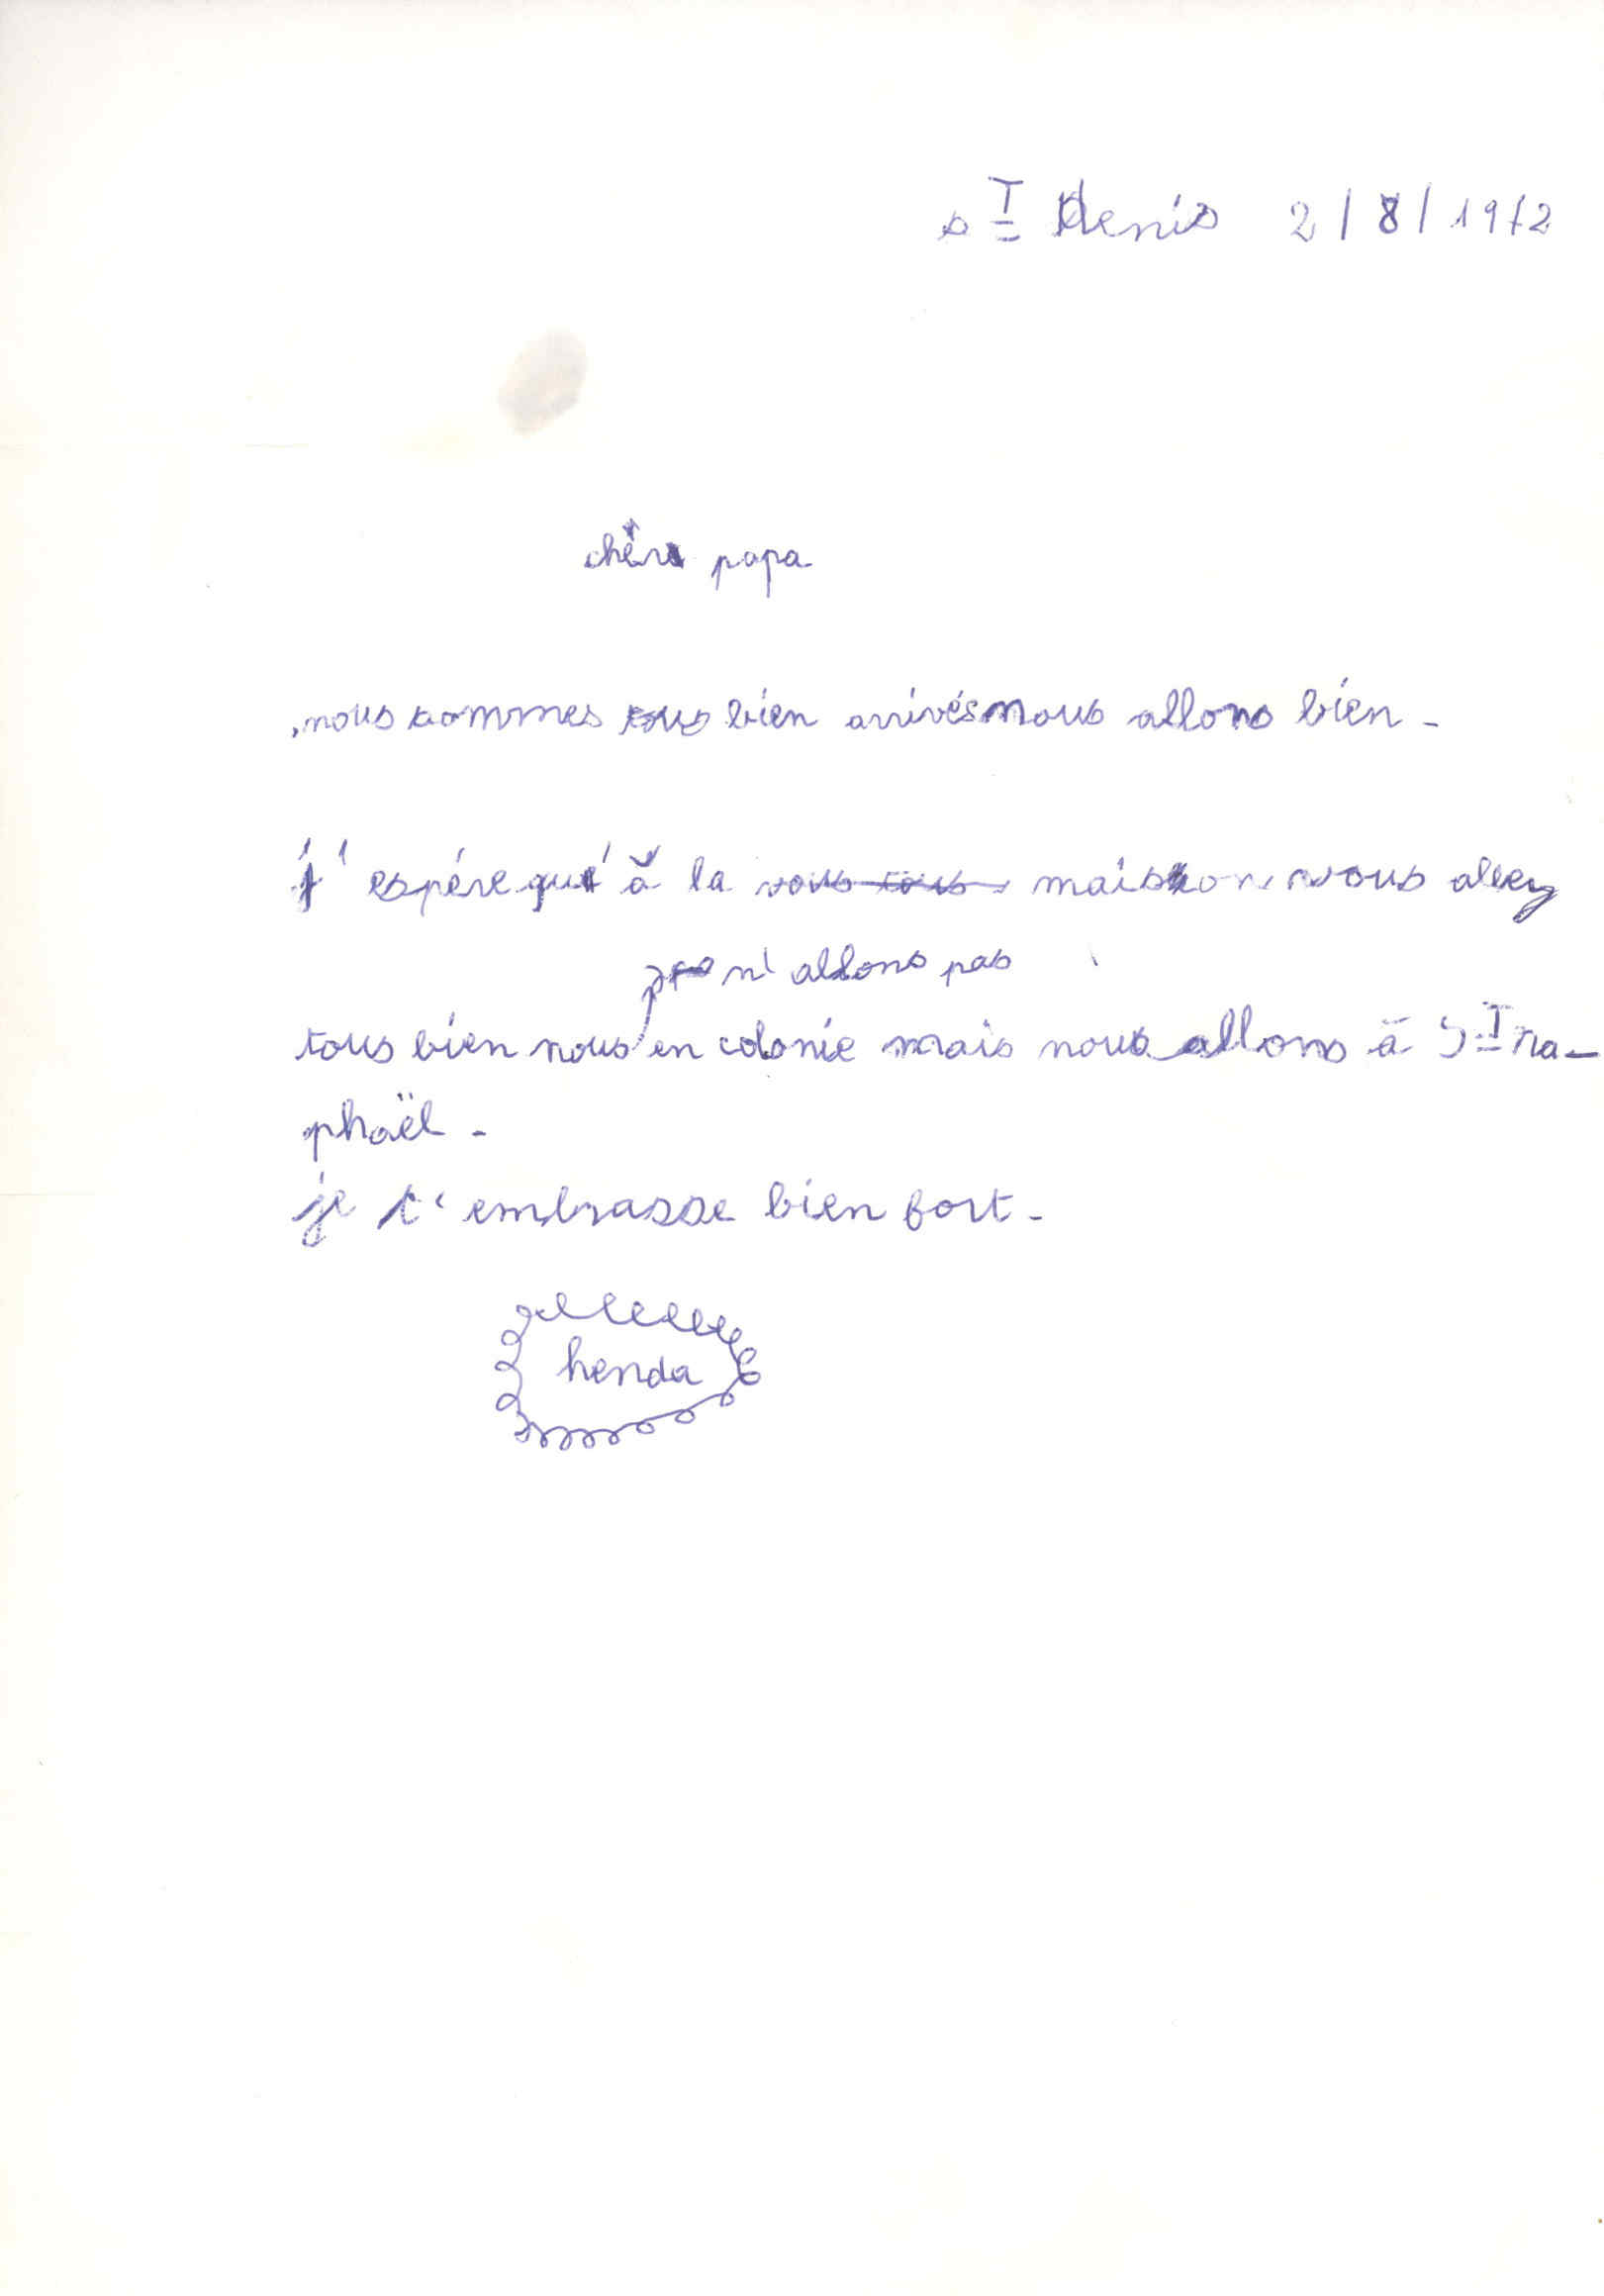 s T Denis 2/8/1972
chère papa
nous sommes tous bien arrivés nous allons bien -
j'espére qu'à la vous tous maison vous allez
n'allons pas
tous bien nous en colonie mais nous allons à S T ra-
phaël -
je t'embrasse bien fort -
henda